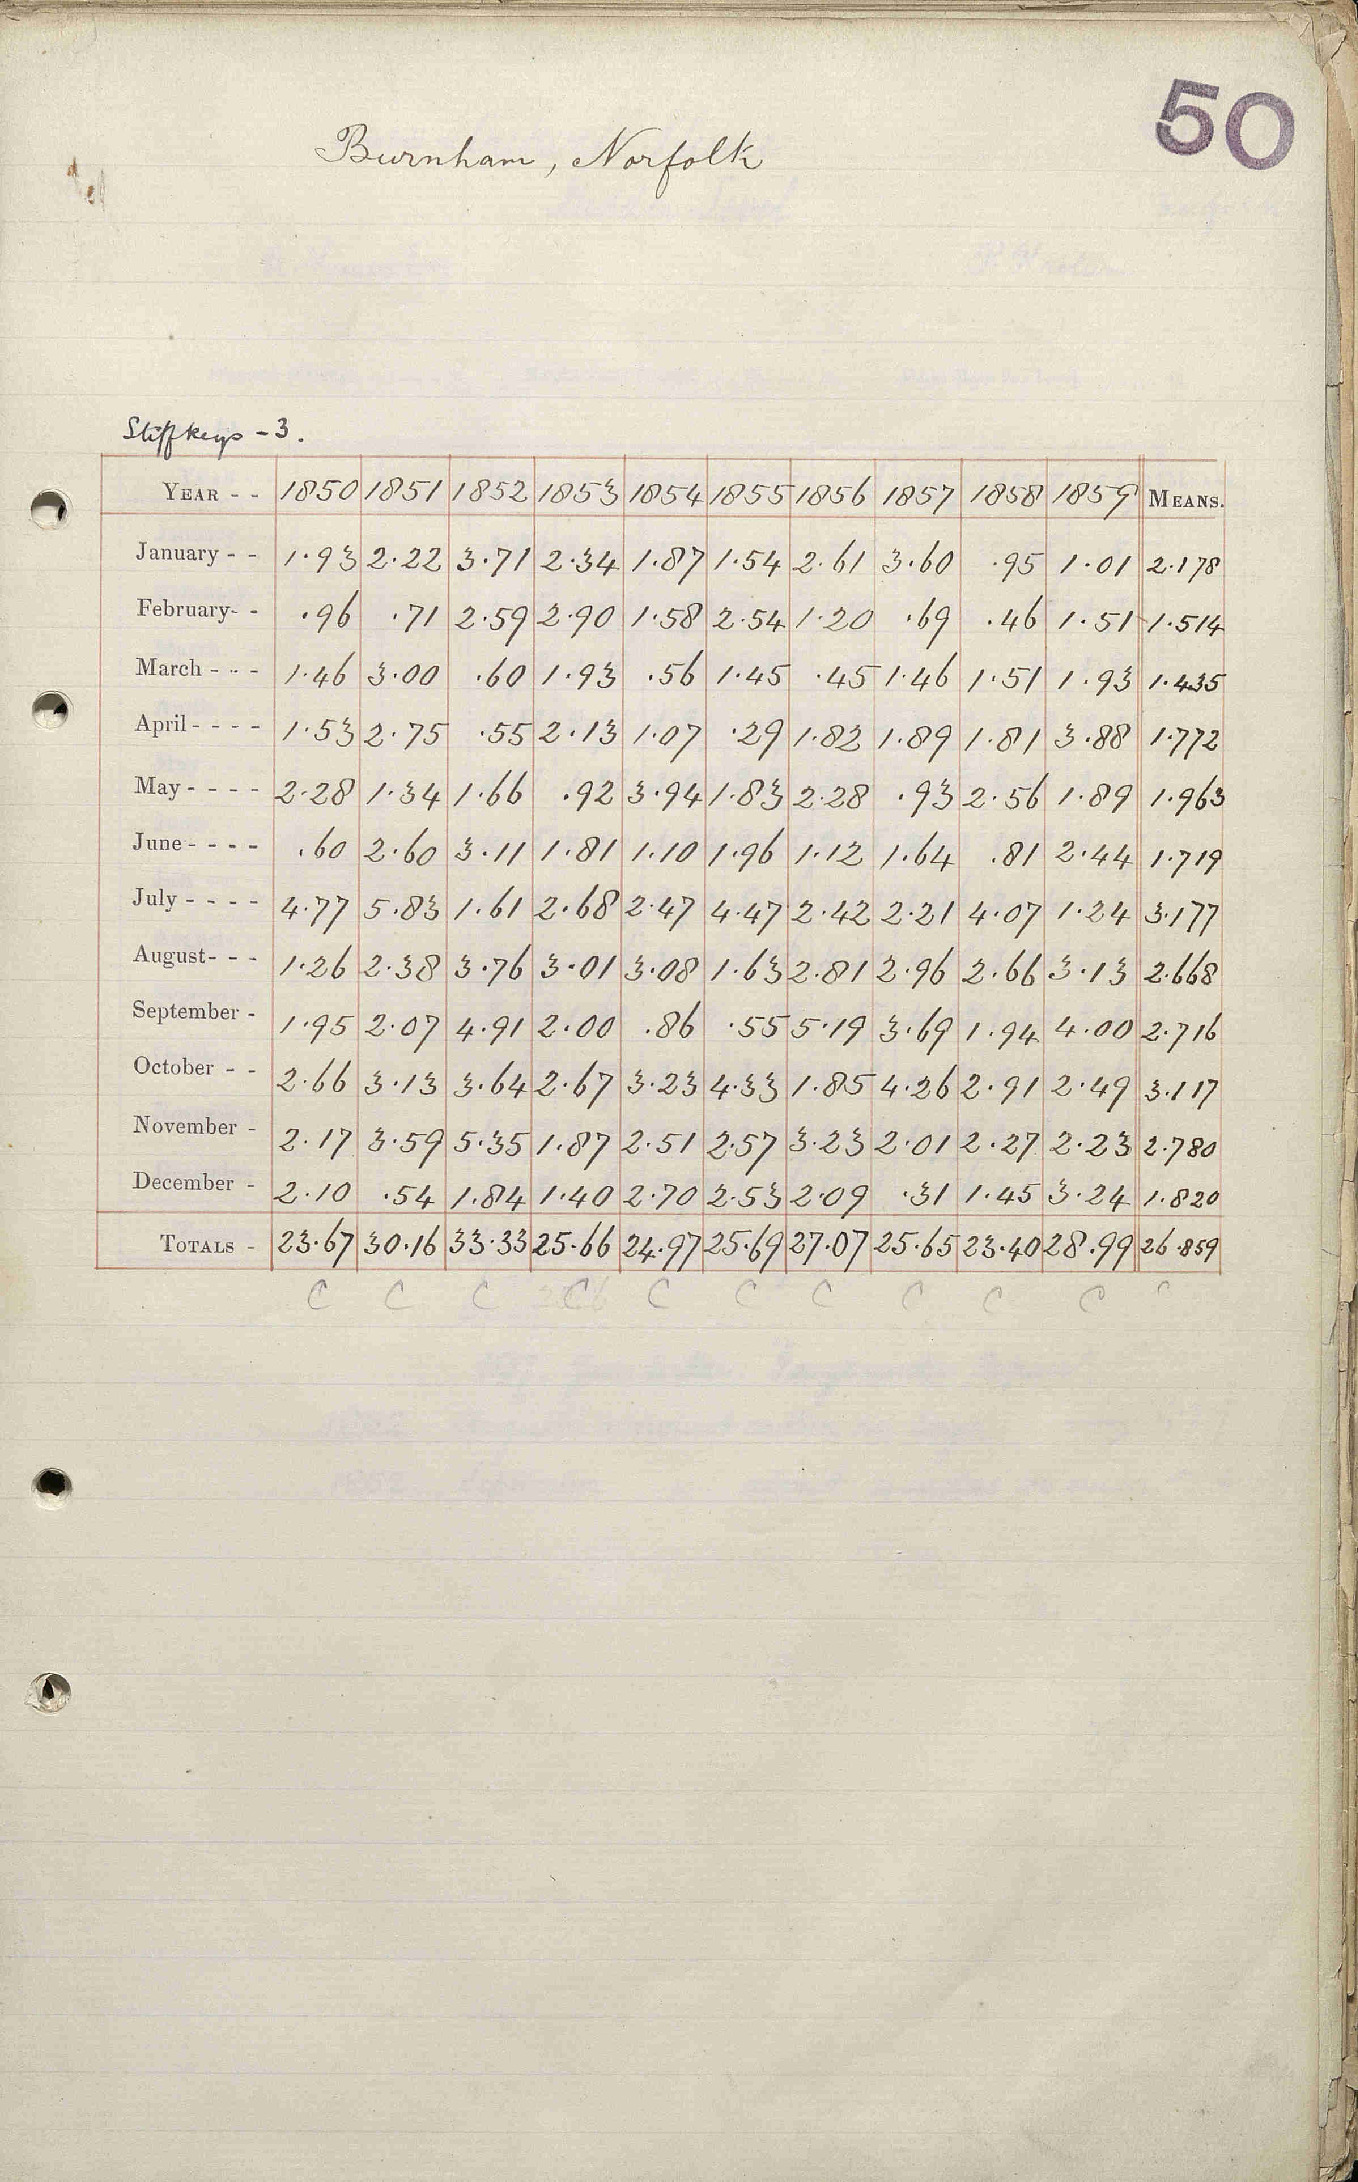 50
Burnham, Norfolk
Stiffkeys - 3.
YEAR - - 1850 1851 1852 1853 1854 1855 1856 1857 1858 1859 MEANS.
January - - 1.93 2.22 3.71 2.34 1.87 1.54 2.61 3.60 .95 1.01 2.178
February- - .96 .71 2.59 2.90 1.58 2.54 1.20 .69 .46 1.51 1.514
March - - - 1.46 3.00 .60 1.93 .56 1.45 .45 1.46 1.51 1.93 1.435
April - - - - 1.53 2.75 .55 2.13 1.07 .29 1.82 1.89 1.81 3.88 1.772
May - - - - 2.28 1.34 1.66 .92 3.94 1.83 2.28 .93 2.56 1.89 1.963
June - - - - .60 2.60 3.11 1.81 1.10 1.96 1.12 1.64 .81 2.44 1.719
July - - - - 4.77 5.83 1.61 2.68 2.47 4.47 2.42 2.21 4.07 1.24 3.177
August- - - 1.26 2.38 3.76 3.01 3.08 1.63 2.81 2.96 2.66 3.13 2.668
September - 1.95 2.07 4.91 2.00 .86 .55 5.19 3.69 1.94 4.00 2.716
October - - 2.66 3.13 3.64 2.67 3.23 4.33 1.85 4.26 2.91 2.49 3.117
November - 2.17 3.59 5.35 1.87 2.51 2.57 3.23 2.01 2.27 2.23 2.780
December - 2.10 .54 1.84 1.40 2.70 2.53 2.09 .31 1.45 3.24 1.820
TOTALS - 23.67 30.16 33.33 25.66 24.97 25.69 27.07 25.65 23.40 28.99 26.859
C C C C C C C C C C C